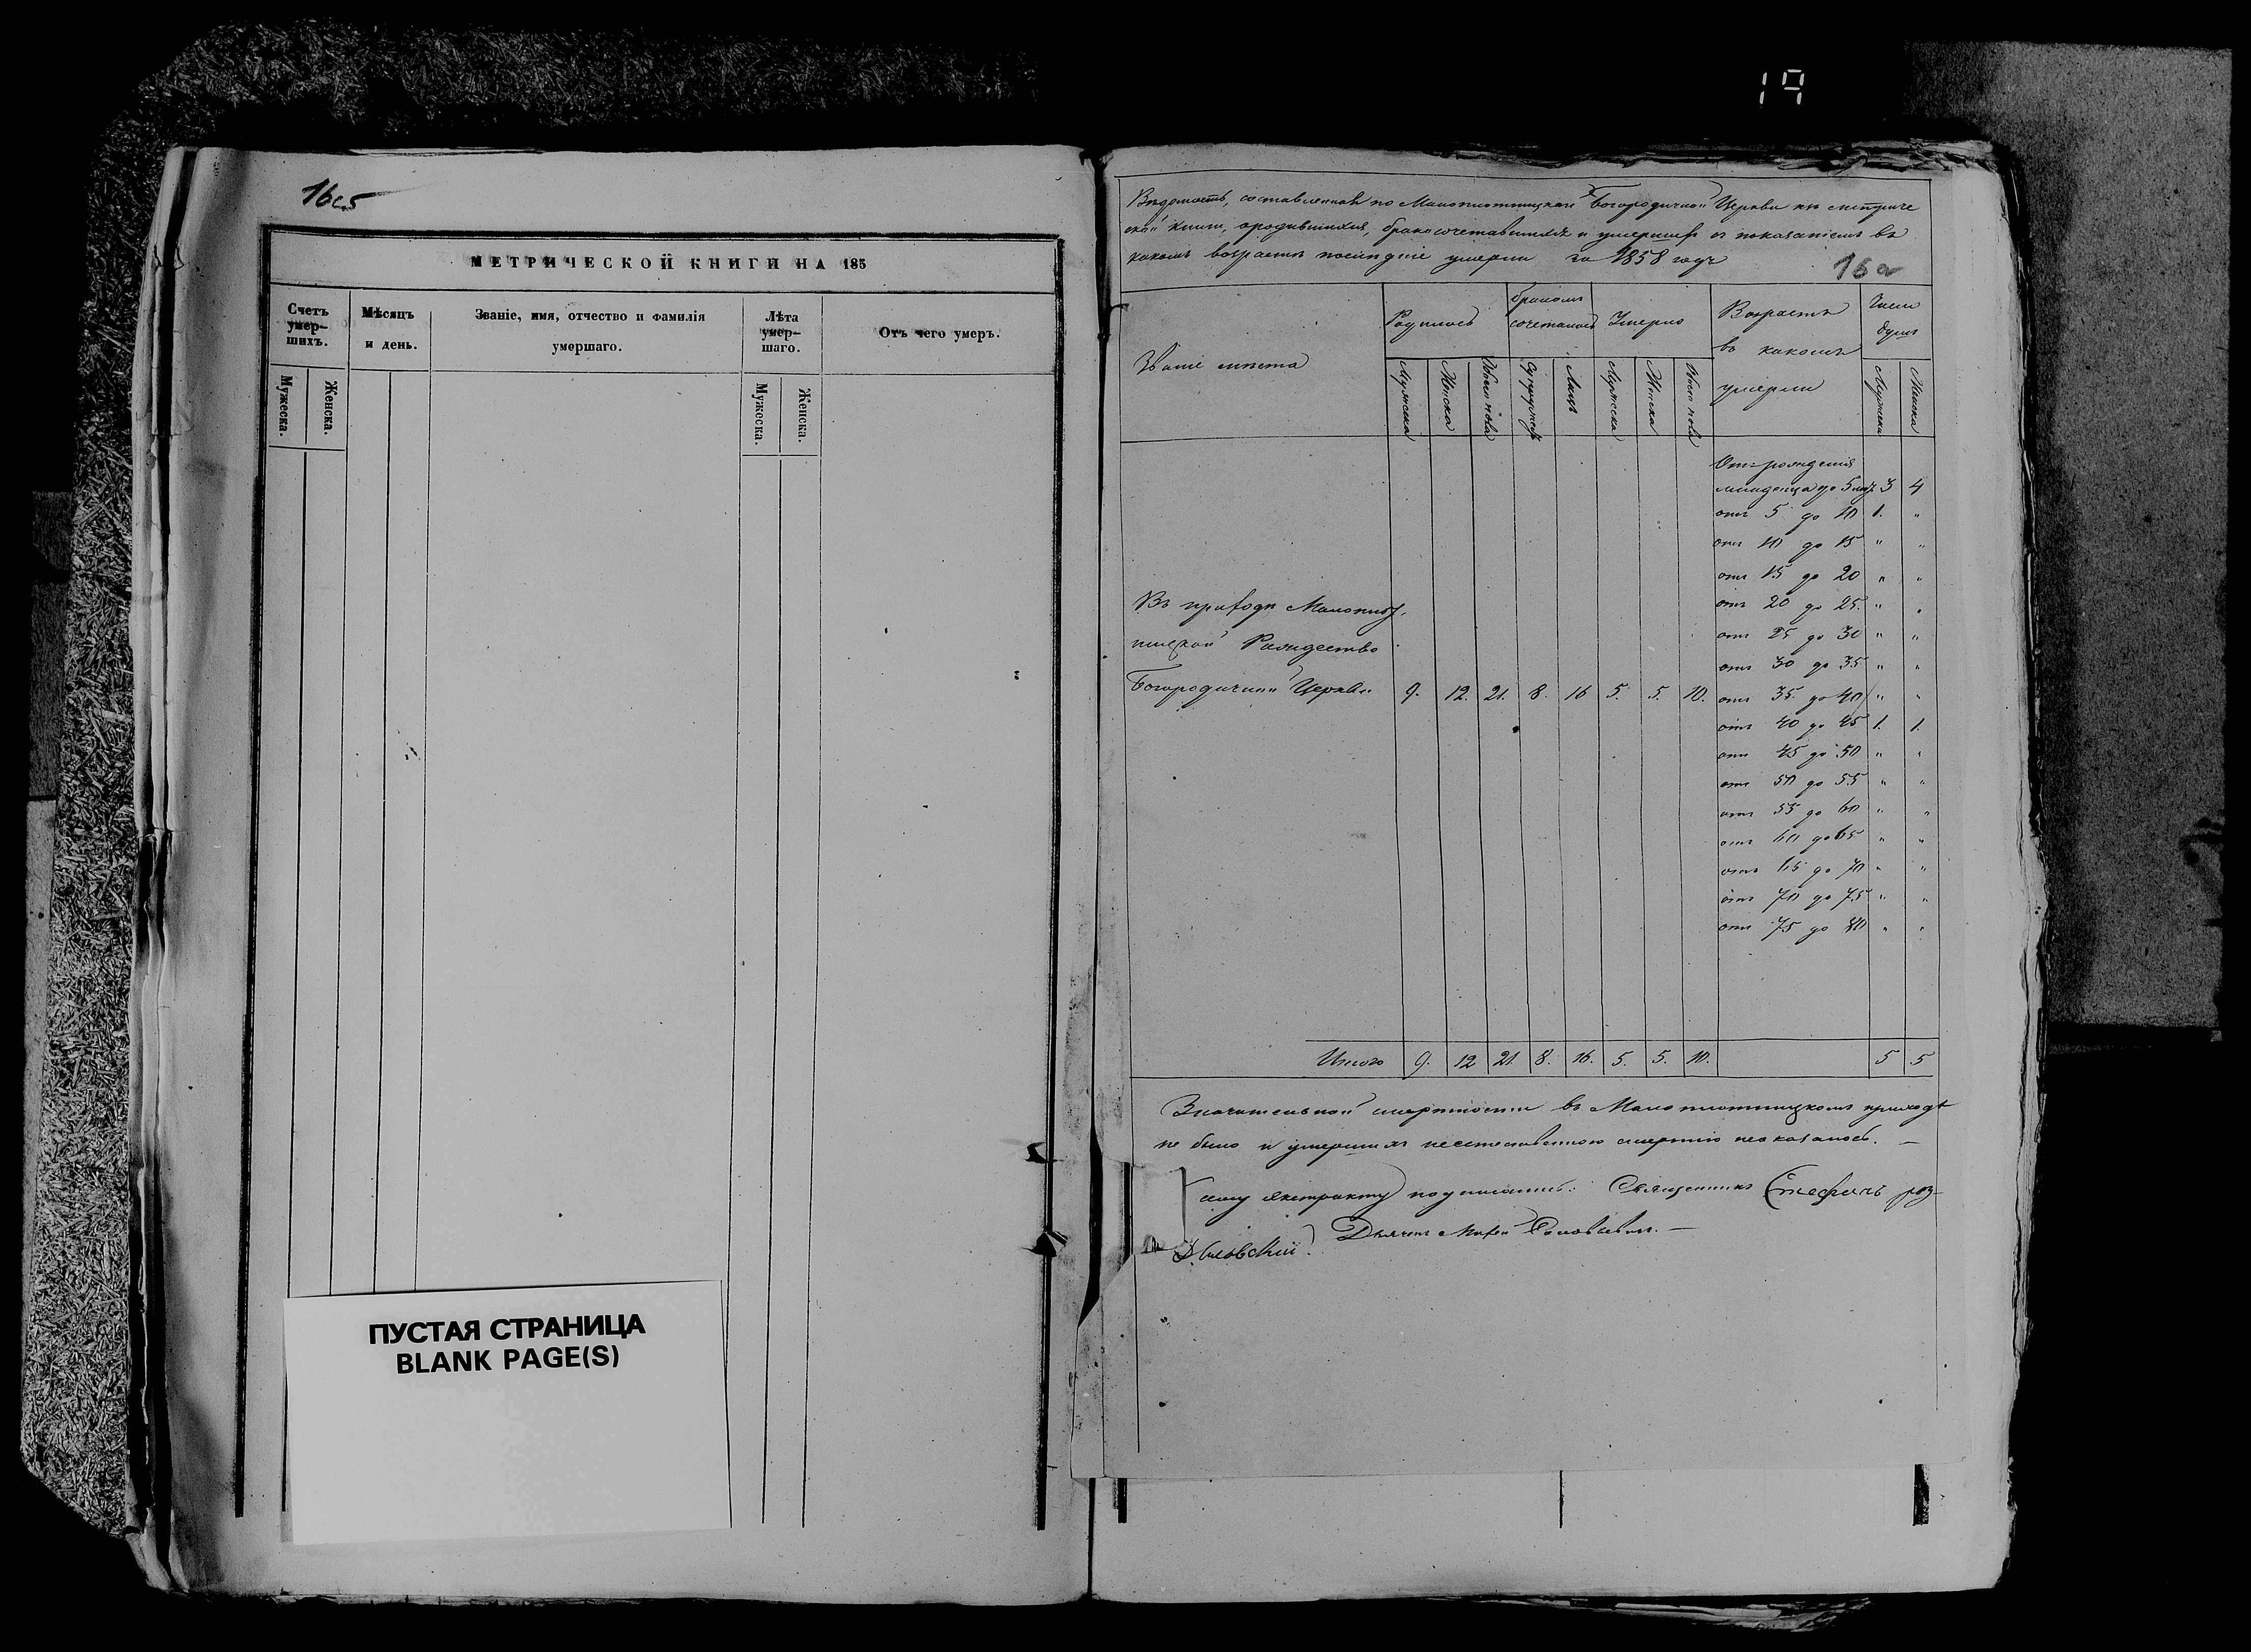 19
МЕТРИЧЕСКОЙ КНИГИ НА 185
Счетъ умер-шихъ.
Мѣсяцъ и день.
Званіе, имя, отчество и фамилія умершаго.
Лѣта умер-шаго.
Отъ чего умеръ.
Мужеска.
Женска.
Мужеска.
Женска.
ПУСТАЯ СТРАНИЦА
BLANK PAGE(S)
Вѣдомость, составленная по Малоплотницкой Богородичной Церкви къ метриче
ской книги, о родившихся, бракосочетавшихся и умершихъ съ показаніемъ въ
какомъ возрастѣ послѣдніе умерли за 1858 годъ
16а
Званіе мѣста
Родилось
бракомъ сочеталось
Умерло
Возрастъ въ какомъ умерли
Число душъ
Мужеска
Женска
Обоего пола
Супружествъ
Лицъ
Мужеска
Женска
Обоего пола
Мужеска
Женска
Отъ рожденія
младенца до 5 лѣтъ 3 4
отъ 5 до 10 1. "
отъ 10 до 15 " "
отъ 15 до 20 " "
отъ 20 до 25 " "
отъ 25 до 30 " "
отъ 30 до 35 " "
отъ 35 до 40 " "
отъ 40 до 45 1. 1.
отъ 45 до 50 " "
отъ 50 до 55 " "
отъ 55 до 60 " "
отъ 60 до 65 " "
отъ 65 до 70 " "
отъ 70 до 75 " "
отъ 75 до 80 " "
Въ приходѣ Малоплот.
ницкой Рождество
Богородичной Церкви 9. 12. 21. 8. 16 5. 5. 10.
Итого 9. 12 21 8. 16. 5. 5. 10. 5 5
Значительной смертности въ Малоплотницкомъ приходѣ
не было и умершихъ неестественною смертію не оказалось. —
сему экстракту подписались: Священникъ Стефанъ
Дьячекъ Соловьевичъ. —